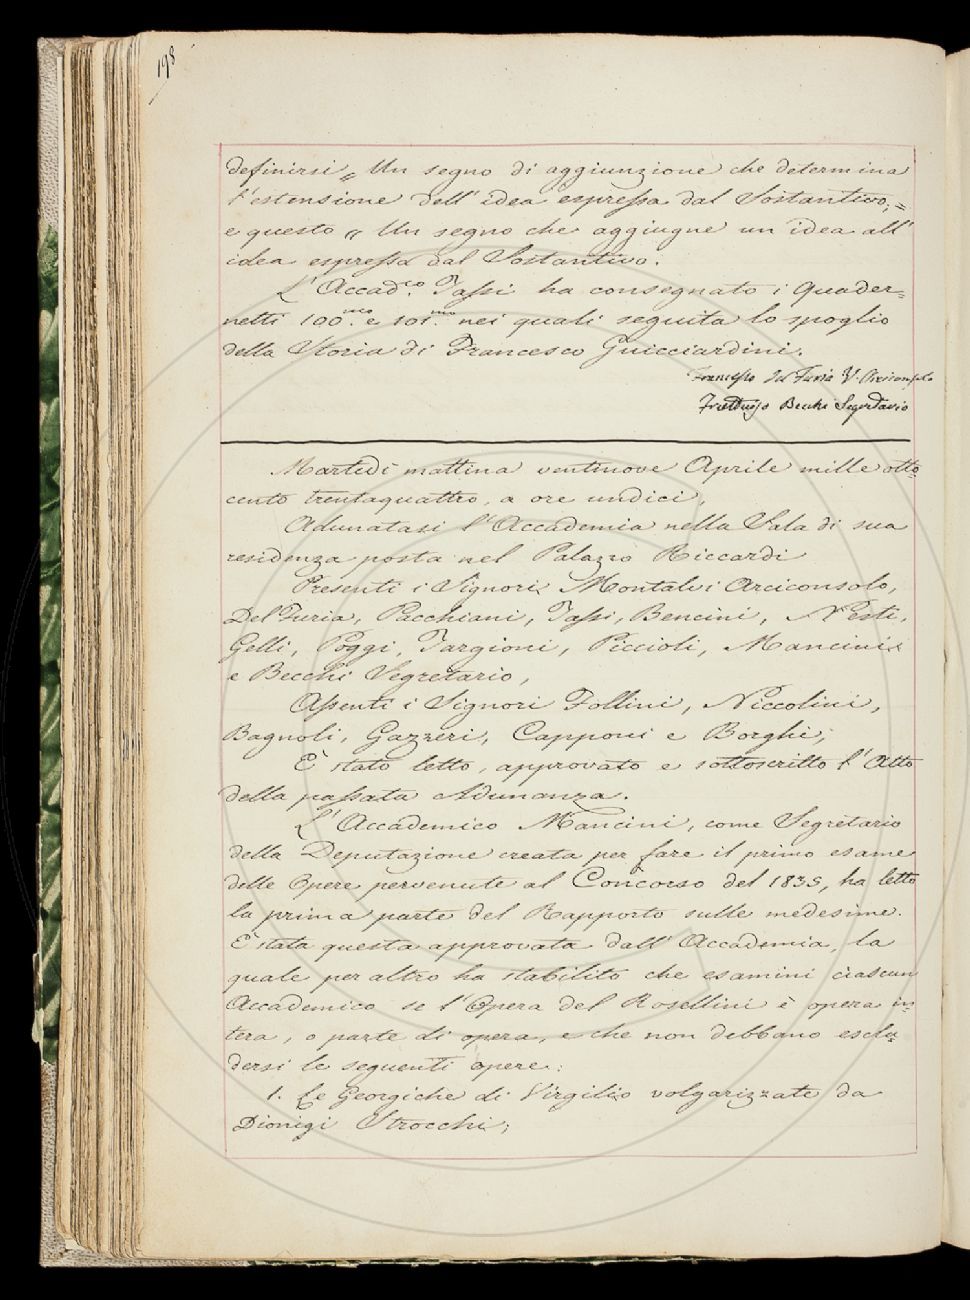 198
definirsi „ Un segno di aggiunzione che determina
l'estensione dell'idea espressa dal Sostantivo; =
e questo „ Un segno che aggiugne un idea all'
idea espressa dal Sostantivo.
L'Accad.co Tassi ha consegnato i Quader=
netti 100.mo e 101.mo nei quali seguita lo spoglio
della Storia di Francesco Guicciardini.
Francesco Del Furia V. Arciconsolo
Fruttuoso Becchi Segretario
Martedì mattina ventinove Aprile mille otto=
cento trentaquattro, a ore undici,
Adunatasi l'Accademia nella Sala di sua
residenza posta nel Palazzo Riccardi
Presenti i Signori Montalvi Arciconsolo,
Del Furia, Pacchiani, Tassi, Bencini, Nesti,
Gelli, Poggi, Targioni, Piccioli, Mancini
e Becchi Segretario,
Assenti i Signori Follini, Niccolini,
Bagnoli, Gazzeri, Capponi e Borghi;
È stato letto, approvato e sottoscritto l'Atto
della passata Adunanza.
L'Accademico Mancini, come Segretario
della Deputazione creata per fare il primo esame
delle Opere pervenute al Concorso del 1835, ha letto
la prima parte del Rapporto sulle medesime.
È stata questa approvata dall'Accademia, la
quale per altro ha stabilito che esamini ciascun
Accademico se l'Opera del Rosellini è opera in=
tera, o parte di opera, e che non debbano esclu=
dersi le seguenti opere:
1. Le Georgiche di Virgilio volgarizzate da
Dionigi Strocchi;